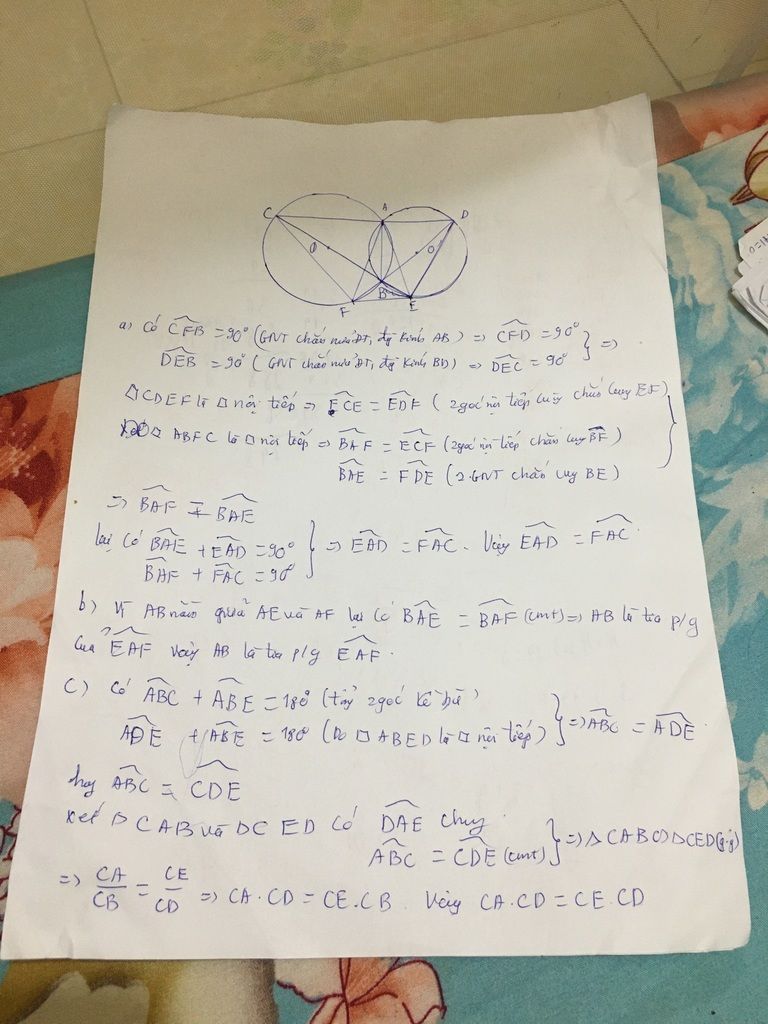 C A D
O O'
B
F E
a) Có CFB = 90° (GNT chắn nửa ĐT, đg kính AB) => CFD = 90° } =>
DEB = 90° ( GNT chắn nửa ĐT, đg kính BD) => DEC = 90°
□ CDEF là □ nội tiếp => ECE = EDF ( 2 góc nội tiếp cùng chắn cung EF)
□ ABFC là □ nội tiếp => BAF = ECF (2 góc nội tiếp chắn cung BF)
BAE = FDE (2 GNT chắn cung BE)
=> BAF = BAE
lại có BAE + EAD = 90° } => EAD = FAC. Vậy EAD = FAC.
BAF + FAC = 90°
b) Vì AB nằm giữa AE và AF lại có BAE = BAF (cmt) => AB là tia p/g
của EAF vậy AB là tia p/g EAF.
c) Có ABC + ABE = 180° ( 2 góc kề bù) } => ABC = ADE.
ADE + ABE = 180° (Do □ ABED là □ nội tiếp)
hay ABC = CDE
xét Δ CAB và Δ CED có DAE chung } => Δ CAB ∽ Δ CED (g.g)
ABC = CDE (cmt)
=> CA/CB = CE/CD => CA.CD = CE.CB. Vậy CA.CD = CE.CD